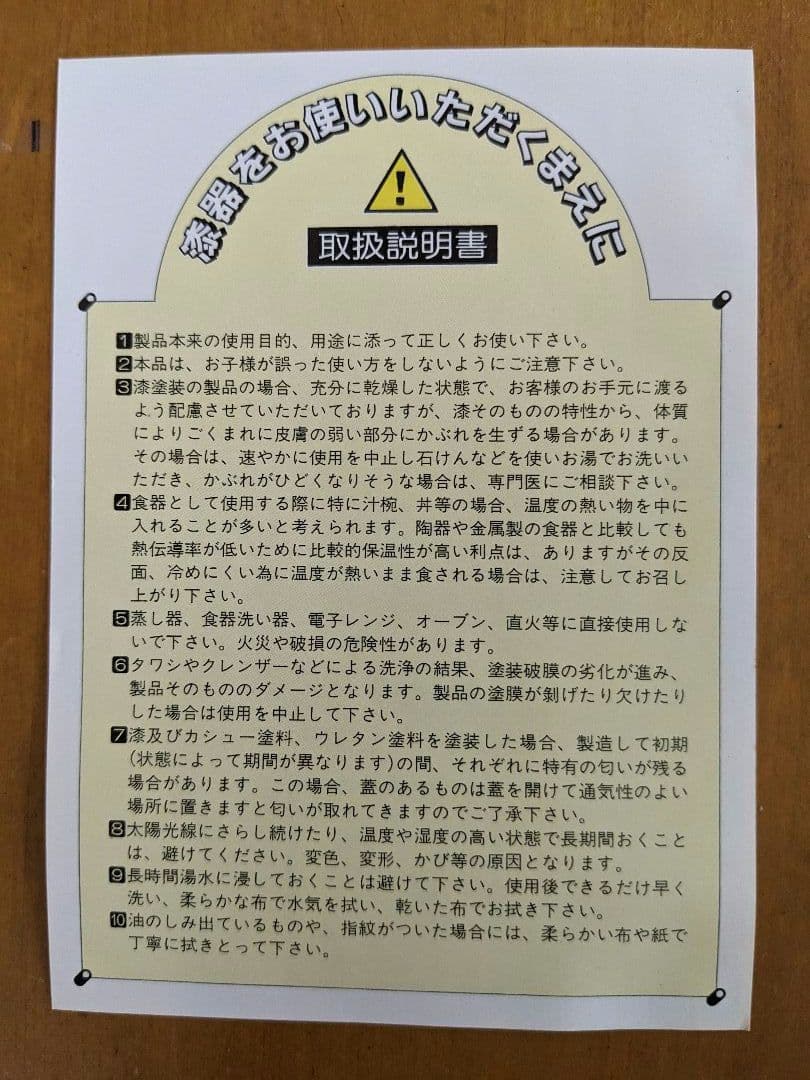 漆器をお使いいただくまえに
取扱説明書
1製品本来の使用目的、用途に添って正しくお使い下さい。
2本品は、お子様が誤った使い方をしないようにご注意下さい。
3漆塗装の製品の場合、充分に乾燥した状態で、お客様のお手元に渡る
よう配慮させていただいておりますが、漆そのものの特性から、体質
によりごくまれに皮膚の弱い部分にかぶれを生ずる場合があります。
その場合は、速やかに使用を中止し石けんなどを使いお湯でお洗いい
ただき、かぶれがひどくなりそうな場合は、専門医にご相談下さい。
4食器として使用する際に特に汁椀、丼等の場合、温度の熱い物を中に
入れることが多いと考えられます。陶器や金属製の食器と比較しても
熱伝導率が低いために比較的保温性が高い利点は、ありますがその反
面、冷めにくい為に温度が熱いまま食される場合は、注意してお召し
上がり下さい。
5蒸し器、食器洗い器、電子レンジ、オーブン、直火等に直接使用しな
いで下さい。火災や破損の危険性があります。
6タワシやクレンザーなどによる洗浄の結果、塗装破膜の劣化が進み、
製品そのもののダメージとなります。製品の塗膜が剝げたり欠けたり
した場合は使用を中止して下さい。
7漆及びカシュー塗料、ウレタン塗料を塗装した場合、製造して初期
(状態によって期間が異なります)の間、それぞれに特有の匂いが残る
場合があります。この場合、蓋のあるものは蓋を開けて通気性のよい
場所に置きますと匂いが取れてきますのでご了承下さい。
8太陽光線にさらし続けたり、温度や湿度の高い状態で長期間おくこと
は、避けてください。変色、変形、かび等の原因となります。
9長時間湯水に浸しておくことは避けて下さい。使用後できるだけ早く
洗い、柔らかな布で水気を拭い、乾いた布でお拭き下さい。
10油のしみ出ているものや、指紋がついた場合には、柔らかい布や紙で
丁寧に拭きとって下さい。